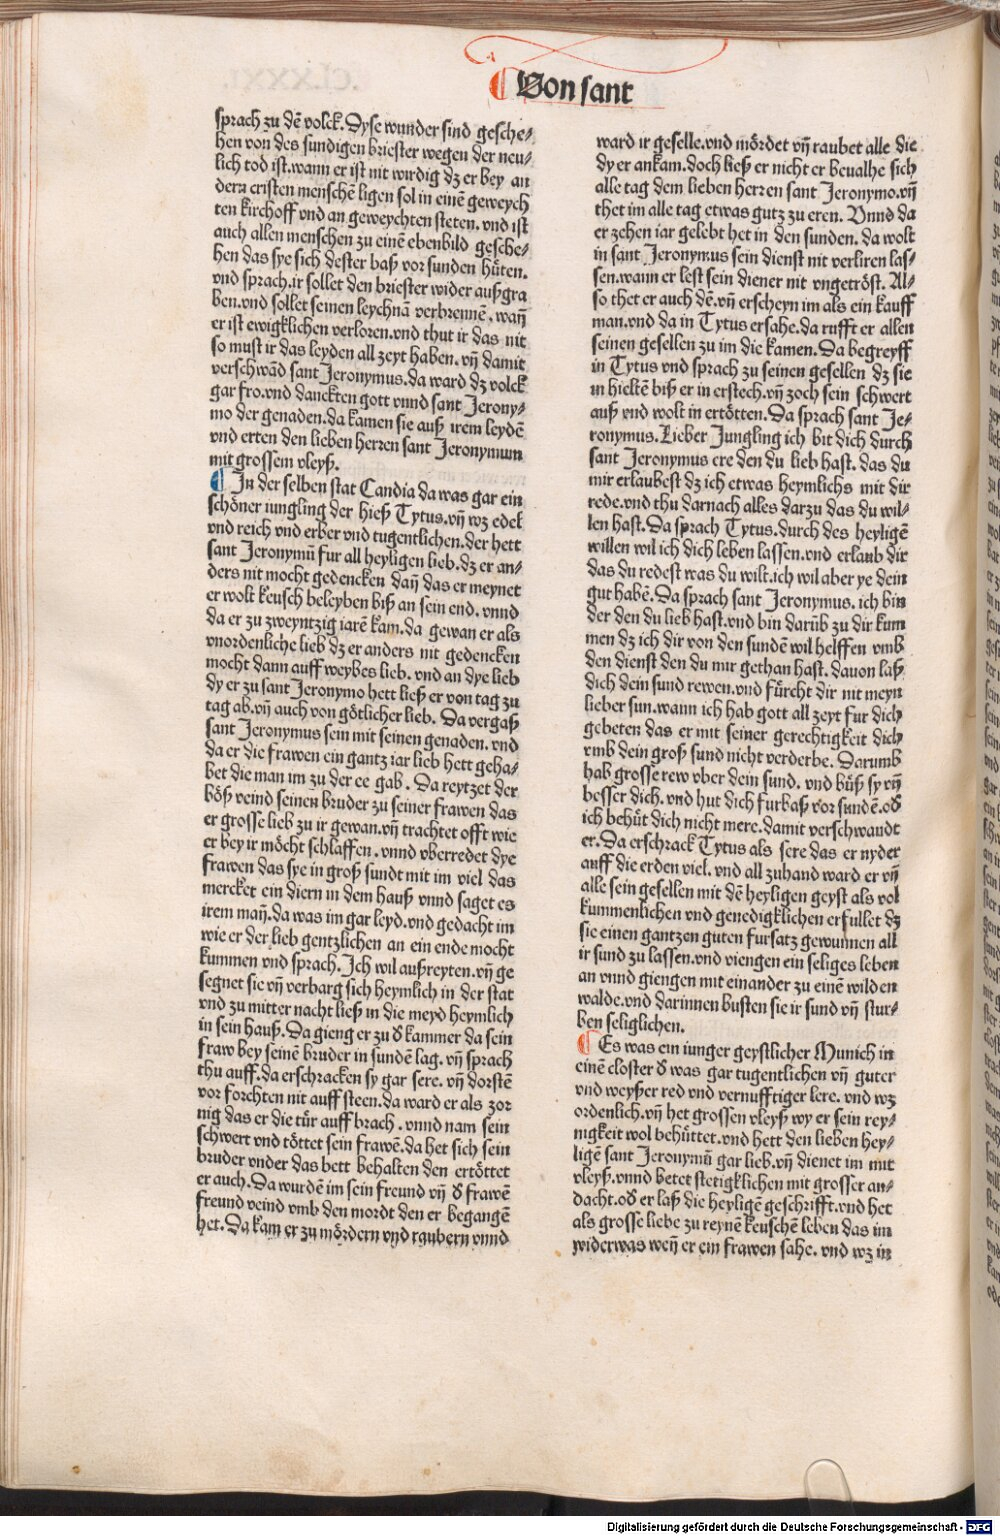 ¶ Von sant
sprach zu dē volck. Dyse wunder sind gesche⸗
hen von des sundigen briester wegen der neu⸗
lich tod ist. wann er ist nit wirdig dz er bey an
dern cristen menschē ligen sol in einē geweych
ten kirchoff vnd an geweychten steten. vnd ist
auch allen menschen zu einē ebenbild gesche⸗
hen das sye sich dester baß vor sunden hüten.
vnd sprach. ir sollet den briester wider außgra
ben. vnd sollet seinen leychnā verbrennē. wañ
er ist ewigklichen verloren. vnd thut ir das nit
so must ir das leyden all zeyt haben. vñ damit
verschwād sant Jeronymus. da ward dz volck
gar fro. vnd danckten gott vnnd sant Jerony⸗
mo der genaden. da kamen sie auß irem leydē
vnd erten den lieben herren sant Jeronymum
mit grossem vleyß.
¶ In der selben stat Candia da was gar ein
schöner iungling der hieß Tytus. vñ wz edel
vnd reich vnd erber vnd tugentlichen. der hett
sant Jeronymū fur all heyligen lieb. dz er an⸗
ders nit mocht gedencken dañ das er meynet
er wolt keusch beleyben biß an sein end. vnnd
da er zu zweyntzig iarē kam. da gewan er als
vnordenliche lieb dz er anders nit gedencken
mocht dann auff weybes lieb. vnd an dye lieb
dy er zu sant Jeronymo hett ließ er von tag zu
tag ab. vñ auch von götlicher lieb. Da vergaß
sant Jeronymus sein mit seinen genaden. vnd
da er die frawen ein gantz iar lieb hett geha⸗
bet die man im zu der ee gab. Da reytzet der
böß veind seinen bruder zu seiner frawen das
er grosse lieb zu ir gewan. vñ trachtet offt wie
er bey ir möcht schlaffen. vnnd vberredet dye
frawen das sye in groß sundt mit im viel das
mercket ein diern in dem hauß vnnd saget es
irem mañ. da was im gar leyd. vnd gedacht im
wie er der lieb gentzlichen an ein ende mocht
kummen vnd sprach. Ich wil außreyten. vñ ge
segnet sie vñ verbarg sich heymlich in der stat
vnd zu mitter nacht ließ in die meyd heymlich
in sein hauß. Da gieng er zu d̕ kammer da sein
fraw bey seinē bruder in sundē lag. vñ sprach
thu auff. da erschracken sy gar sere. vñ dorstē
vor forchten nit auff steen. da ward er als zor
nig das er die tür auff brach. vnnd nam sein
schwert vnd töttet sein frawē. da het sich sein
bruder vnder das bett behalten den ertöttet
er auch. Da wurdē im sein freund vñ d̕ frawē
freund veind vmb den mordt den er begangē
het. Da kam er zu mördern vnd raubern vnnd
ward ir geselle. vnd mördet vñ raubet alle die
dy er ankam. doch ließ er nicht er beualhe sich
alle tag dem lieben herren sant Jeronymo. vñ
thet im alle tag etwas gutz zu eren. Vnnd da
er zehen iar gelebt het in den sunden. da wolt
in sant Jeronymus sein dienst nit verliren las⸗
sen. wann er lest sein diener nit vngetröst. Al⸗
so thet er auch dē. vñ erscheyn im als ein kauff
man. vnd da in Tytus ersahe. da rufft er allen
seinen gesellen zu im die kamen. Da begreyff
in Tytus vnd sprach zu seinen gesellen dz sie
in hieltē biß er in erstech. vñ zoch sein schwert
auß vnd wolt in ertötten. Da sprach sant Je⸗
ronymus. Lieber Jungling ich bit dich durch
sant Jeronymus ere den du lieb hast. das du
mir erlaubest dz ich etwas heymlichs mit dir
rede. vnd thu darnach alles darzu das du wil⸗
len hast. Da sprach Tytus. durch des heyligē
willen wil ich dich leben lassen. vnd erlaub dir
das du redest was du wilt. ich wil aber ye dein
gut habē. Da sprach sant Jeronymus. ich bin
der den du lieb hast. vnd bin darūb zu dir kum
men dz ich dir von den sundē wil helffen vmb
den dienst den du mir gethan hast. dauon laß
dich dein sund rewen. vnd fürcht dir nit meyn
lieber sun. wann ich hab gott all zeyt fur dich
gebeten das er mit seiner gerechtigkeit dich
vmb dein groß sund nicht verderbe. Darumb
hab grosse rew vber dein sund. vnd büß sy vñ
besser dich. vnd hut dich furbaß vor sundē. od̕
ich behüt dich nicht mere. damit verschwandt
er. Da erschrack Tytus als sere das er nyder
auff die erden viel. vnd all zuhand ward er vñ
alle sein gesellen mit dē heyligen geyst als vol
kummenlichen vnd genedigklichen erfullet dz
sie einen gantzen guten fursatz gewunnen all
ir sund zu lassen. vnd viengen ein seliges leben
an vnnd giengen mit einander zu einē wilden
walde. vnd darinnen busten sie ir sund vñ stur⸗
ben seliglichen.
¶ Es was ein iunger geystlicher Munich in
einē closter d̕ was gar tugentlichen vñ guter
vnd weyser red vnd vernufftiger lere. vnd wz
ordenlich. vñ het grossen vleyß wy er sein rey⸗
nigkeit wol behüttet. vnd hett den lieben hey⸗
ligē sant Jeronymū gar lieb. vñ dienet im mit
vleyß. vnnd betet stetigklichen mit grosser an⸗
dacht. od̕ er laß die heyligē geschrifft. vnd het
als grosse liebe zu reynē keuschē leben das im
widerwas weñ er ein frawen sahe. vnd wz in
Digitalisierung gefördert durch die Deutsche Forschungsgemeinschaft - DFG